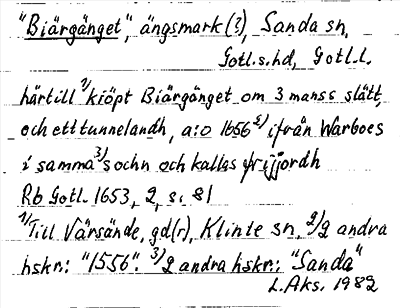 "Biärgänget", ängsmark(?), Sanda sn,
Gotl.s.hd, Gotl.l.
härtill 1/ kiöpt Biärgänget om 3 manss slätt
och ett tunnelandh, a:o 1656 2/ ifrån Warboes
i samma 3/ sochn och kallas frijjordh
Rb Gotl. 1653, 2, s. 81
1/ Till Värsände, gd(r), Klinte sn, 2/ 2 andra
hskr.: "1556". 3/ 2 andra hskr.: "Sanda"
L.Aks. 1982